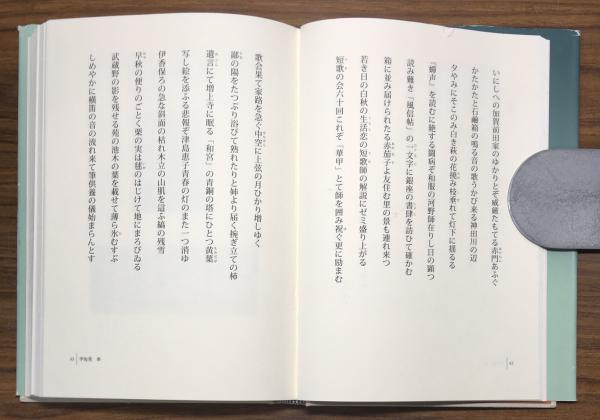 いにしへの加賀前田家のゆかりとぞ威厳たもてる赤門あふぐ
かたかたと石鹸箱の鳴る音の歌うかび来る神田川の辺
夕やみにそこのみ白き萩の花撓み枝垂れて灯下に揺るる
「蟬声」を読むに絶する闘病ぞ和服の河野師在りし日の顕つ
読み難き「風信帖」の一文字に銀座の書肆を訪ひて確かむ
箱に並み届けられたる赤茄子よ友住む里の景も連れ来つ
若き日の白秋の生活恋の短歌師の解説にゼミ盛り上がる
短歌の会六十回これぞ「華甲」とて師を囲み祝ぐ更に励まむ
42
歌会果て家路を急ぐ中空に上弦の月ひかり増しゆく
鄙の陽をたつぷり浴びて熟れたりと姉より届く捥ぎ立ての柿
遺言にて増上寺に眠る「和宮」の青銅の塔にひとつ黄葉
写し絵を添ふる悲報ぞ津島恵子青春の灯のまた一つ消ゆ
伊香保ろの急な斜面の枯れ木立の山肌を這ふ縞の残雪
早秋の便りのごとく栗の実は毬のはじけて地にまろびゐる
武蔵野の影を残せる苑の池木の葉を載せて薄ら氷むすぶ
しめやかに横笛の音の流れ来て筆供養の儀始まらんとす
43